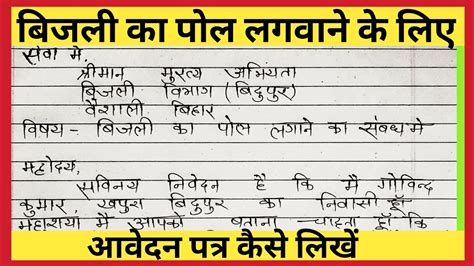 बिजली का पोल लगवाने के लिए
सेवा में,
श्रीमान मुख्य अभियंता
बिजली विभाग (बिदुपुर)
वैशाली बिहार
विषय - बिजली का पोल लगाने का संबंध मे
महोदय,
सविनय निवेदन है कि मै गोविन्द
कुमार, खपुरा बिदुपुर का निवासी हूँ-
महाशया मै आपको बताना चाहता हूँ कि
आवेदन पत्र कैसे लिखें